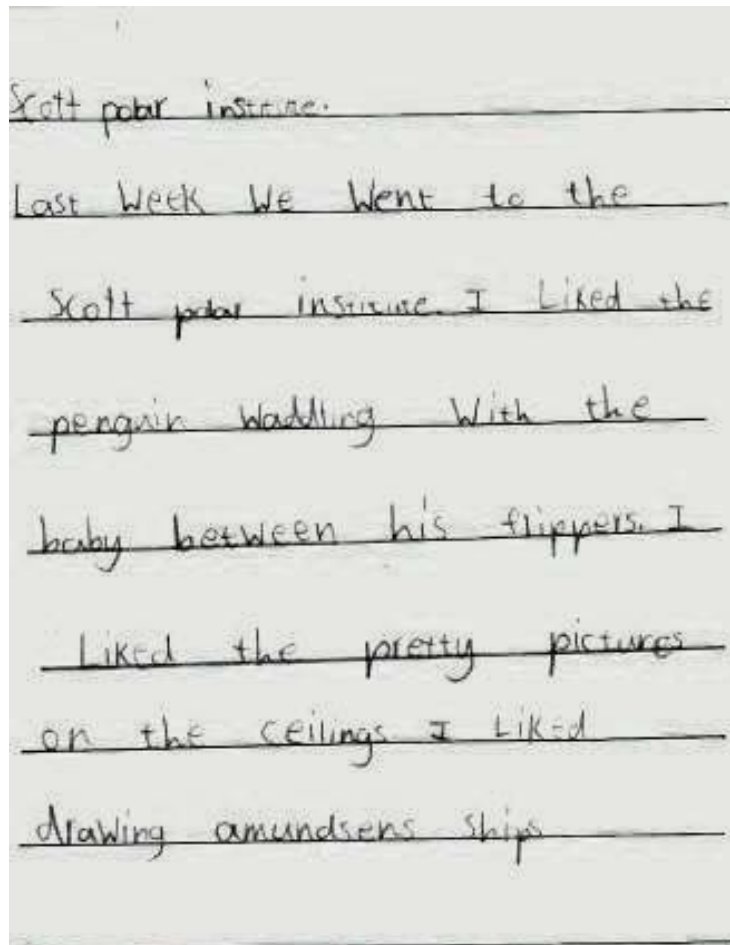 Scott polar institute.
Last Week We Went to the
Scott polar institute. I Liked the
penguin Waddling With the
baby between his flippers. I
Liked the pretty pictures
on the ceilings I Liked
drawing amundsens ships